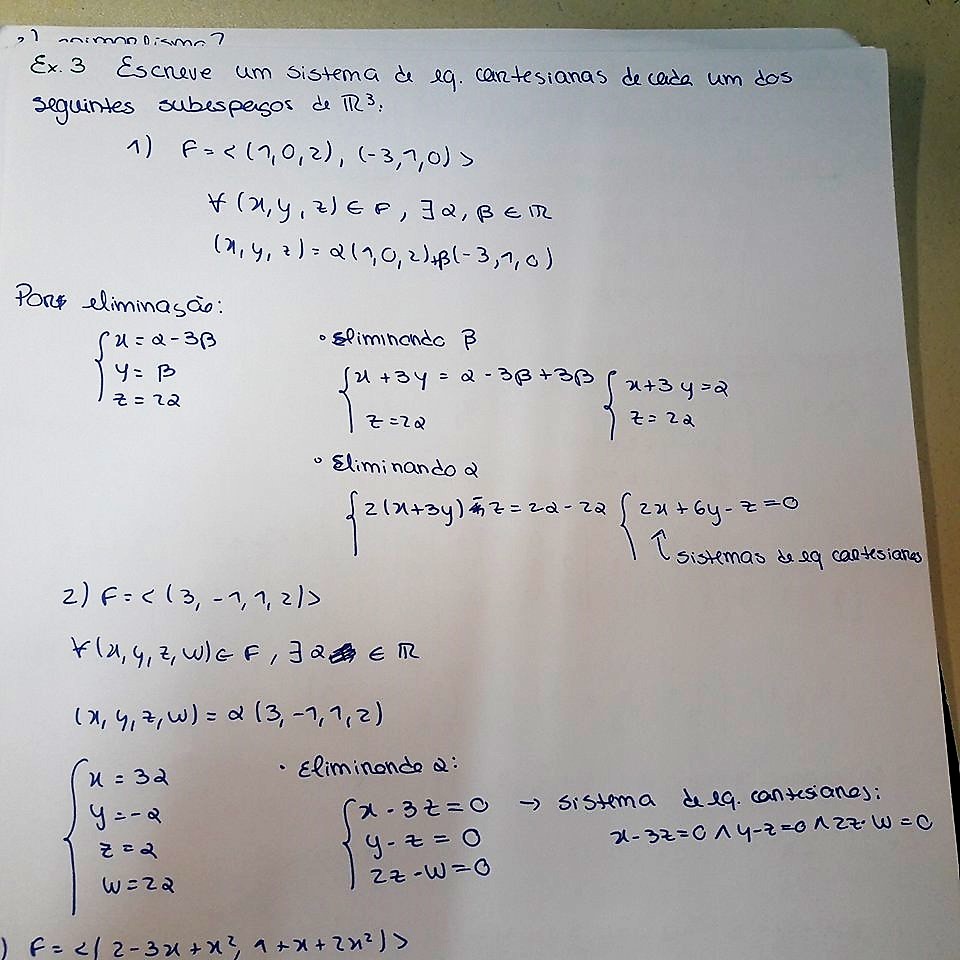 Ex. 3 Escreve um sistema de eq. cartesianas de cada um dos
seguintes subespaços de ℝ³.
1) F = < (1,0,2), (-3,1,0) >
∀ (x,y,z) ∈ F, ∃ α, β ∈ ℝ
(x,y,z) = α(1,0,2)+β(-3,1,0)
Por eliminação:
{ x = α - 3β
y = β
z = 2α
• Eliminando β
{ x + 3y = α - 3β + 3β
z = 2α
{ x + 3y = α
z = 2α
• Eliminando α
{ 2(x+3y) - z = 2α - 2α { 2x + 6y - z = 0
↑ sistemas de eq cartesianas
2) F = < (3, -1, 1, 2) >
∀ (x, y, z, w) ∈ F, ∃ α ∈ ℝ
(x, y, z, w) = α (3, -1, 1, 2)
{ x = 3α
y = -α
z = α
w = 2α
• Eliminando α:
{ x - 3z = 0
y - z = 0
2z - w = 0
→ sistema de eq. cartesianas:
x - 3z = 0 ∧ y - z = 0 ∧ 2z - w = 0
) F = < ( 2 - 3x + x², 1 + x + 2x² ) >